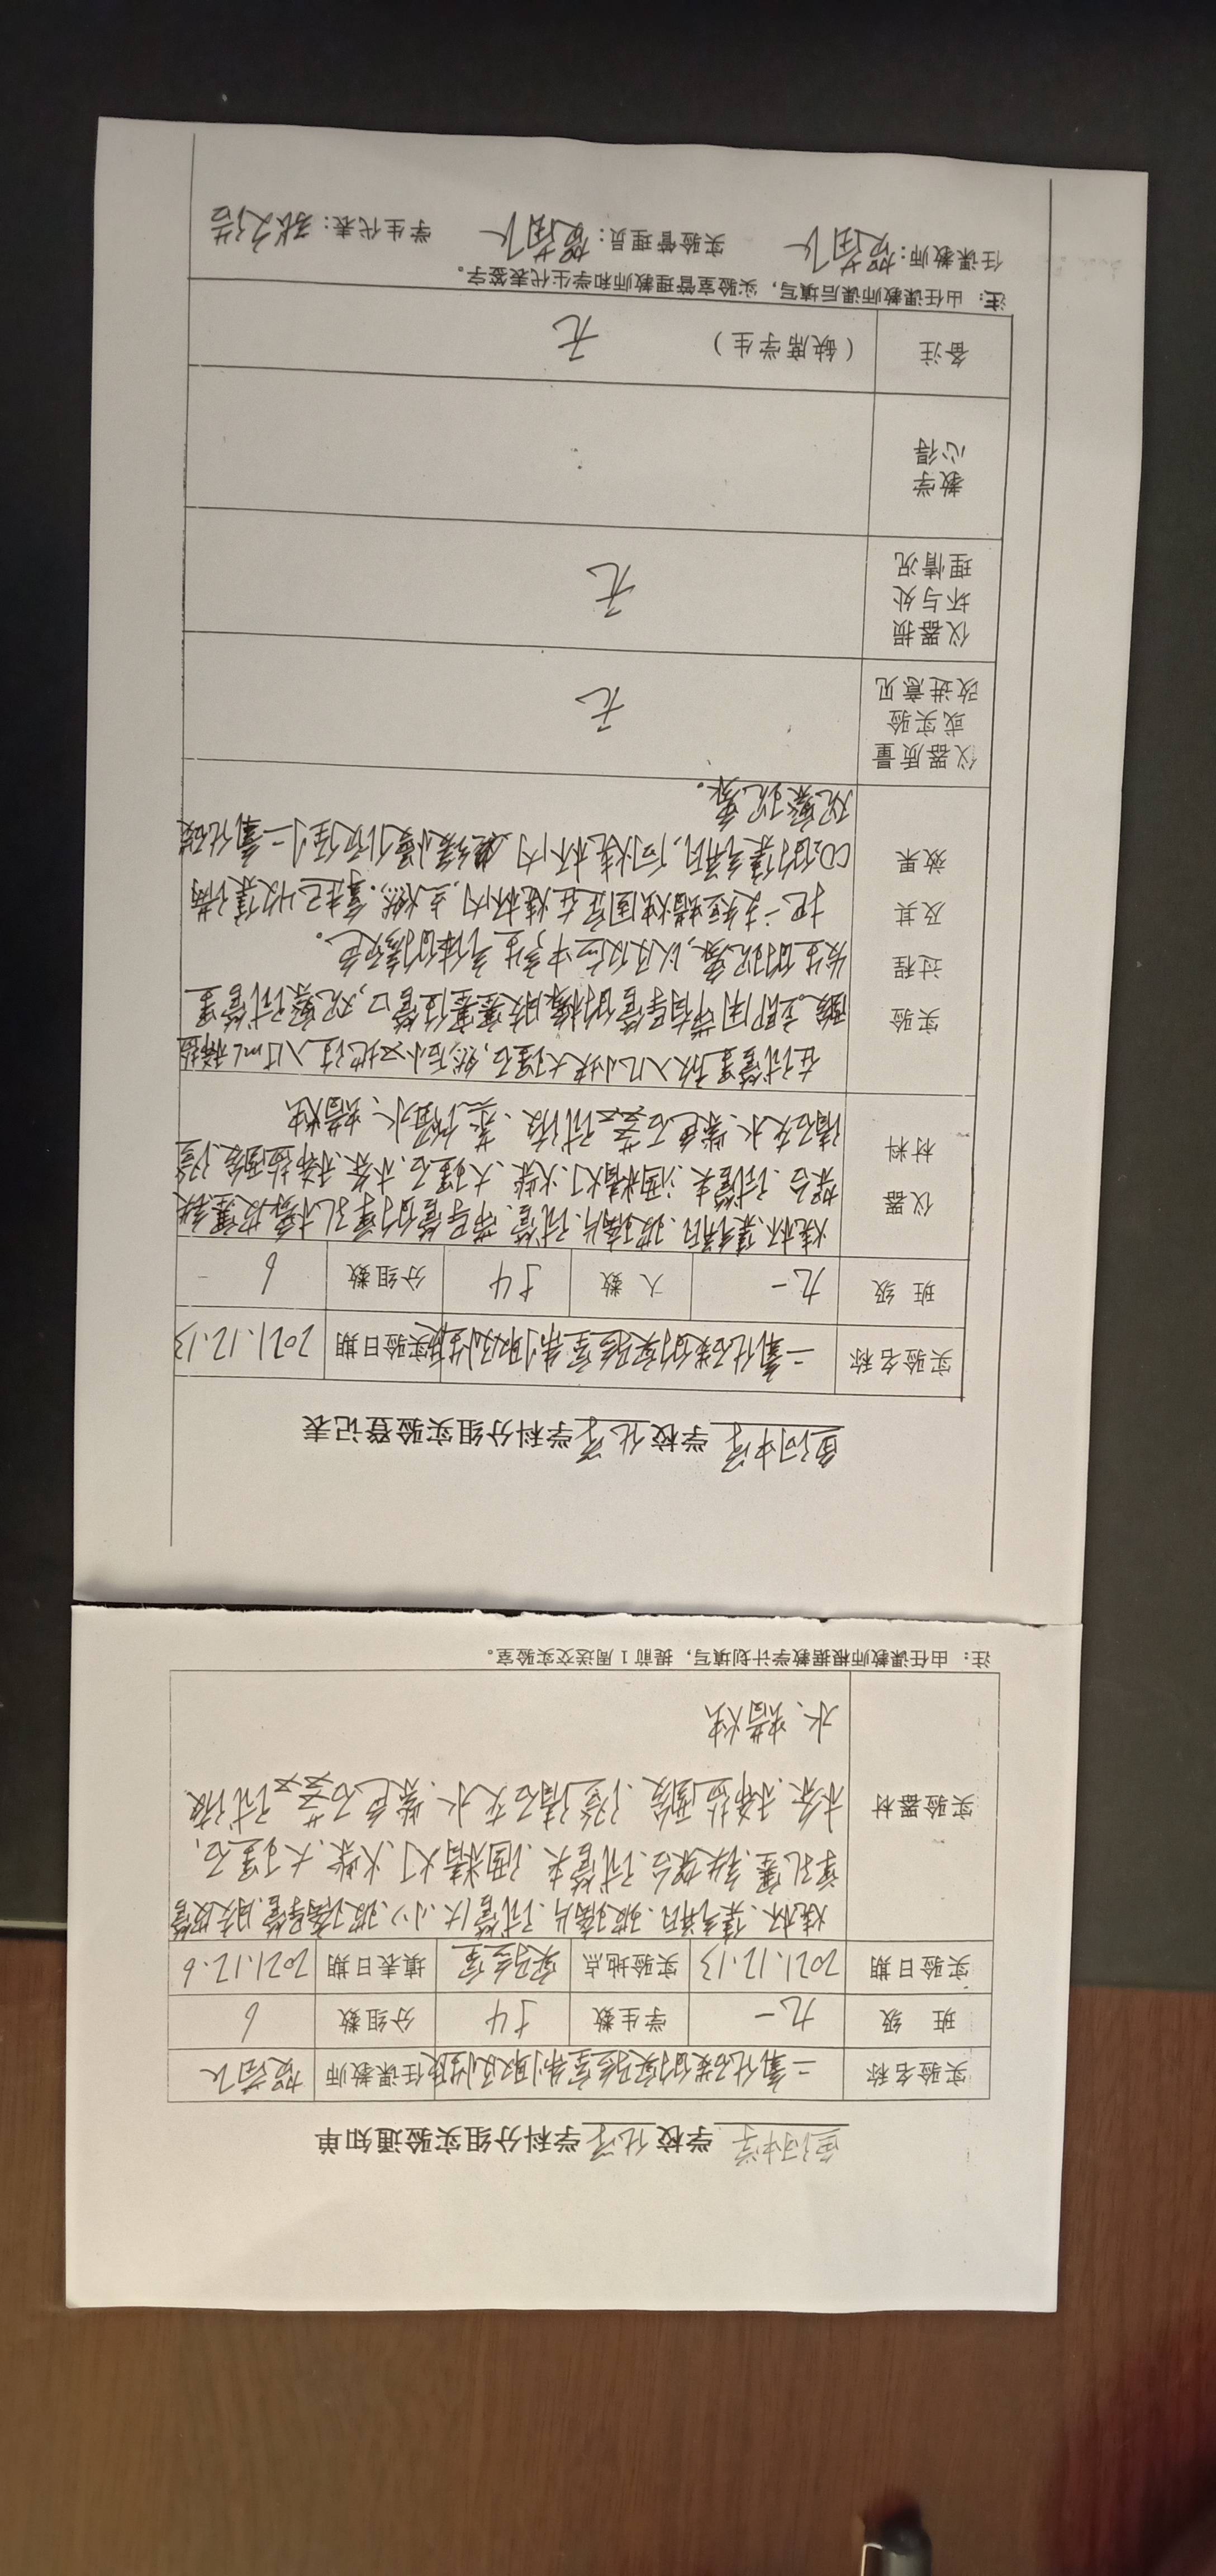 鱼河中学 学校 化学 学科分组实验通知单
实验名称 二氧化碳的实验室制取及性质 任课教师
班 级 九一 学生数 54 分组数 6
实验日期 2021.12.13 实验地点 实验室 填表日期 2021.12.6
实验器材 烧杯、集气瓶、玻璃片、试管(大、小)、玻璃导管、胶皮管
单孔塞、铁架台、试管夹、酒精灯、火柴、大理石、
木条、稀盐酸、澄清石灰水、紫色石蕊试液
水、蜡烛
注：由任课教师根据教学计划填写，提前1周送交实验室。
鱼河中学 学校 化学 学科分组实验登记表
实验名称 二氧化碳的实验室制取及性质 实验日期 2021.12.13
班 级 九一 人 数 54 分组数 6
仪器材料 烧杯、集气瓶、玻璃片、试管、带导管的单孔橡皮塞、铁
架台、试管夹、酒精灯、火柴、大理石、木条、稀盐酸、澄
清石灰水、紫色石蕊试液、蒸馏水、蜡烛
实验过程及其效果 在试管里放入几小块大理石，然后小心地注入15mL稀盐
酸。立即用带有导管的橡胶塞塞住管口，观察试管里
发生的现象，以及反应中产生气体的颜色。
把一支短蜡烛固定在烧杯内，点燃。拿起已收集满
CO2的集气瓶，向烧杯内 缓慢倾倒二氧化碳
观察现象。
仪器质量或实验改进意见 无
仪器损坏与处理情况 无
教学心得
备注 (缺席学生) 无
注：由任课教师课后填写，实验室管理教师和学生代表签字。
任课教师： 实验管理员： 学生代表：